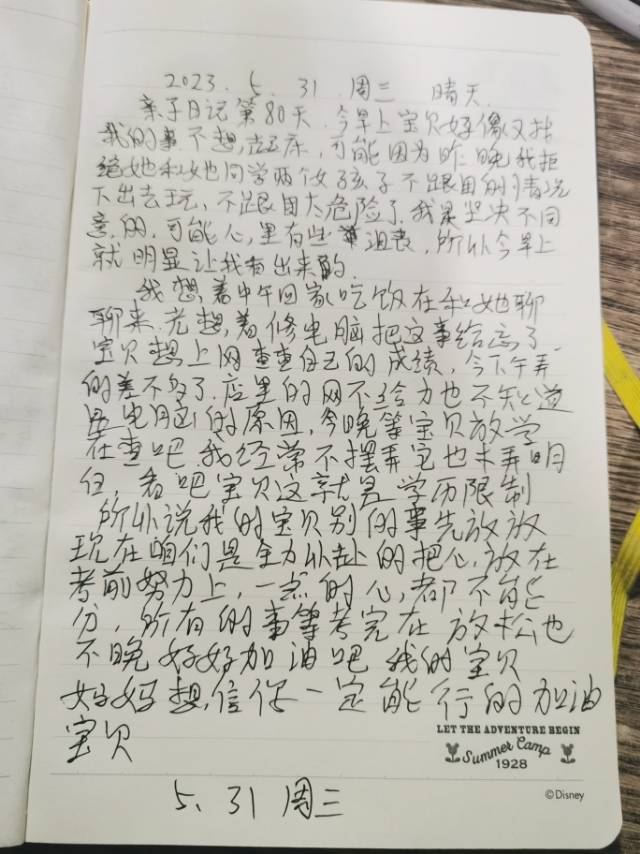 2023. 5. 31 周三 晴天.
亲子日记第80天. 今早上宝贝好像又找
我的事不想起床, 可能因为昨晚我拒
绝她和她同学两个女孩子不跟自的情况
下出去玩, 不跟自太危险了. 我是坚决不同
意的. 可能心里有些沮丧, 所以今早上
就明显让我看出来的.
我想着中午回家吃饭在和她聊
聊来. 光想着修电脑把这事给忘了.
宝贝想上网查查自己的成绩, 今下午弄
的差不多了. 店里的网不给力也不知道
是电脑的原因, 今晚等宝贝放学
在查吧. 我经常不摆弄它也未弄明
白, 看吧宝贝这就是学历限制
所以说我的宝贝别的事先放放
现在咱们是全力以赴的把心放在
考前努力上, 一点的心都不能
分, 所有的事等考完在放松也
不晚好好加油吧 我的宝贝
妈妈想信你一定能行的加油
宝贝
LET THE ADVENTURE BEGIN
Summer Camp
1928
©Disney
5. 31 周三